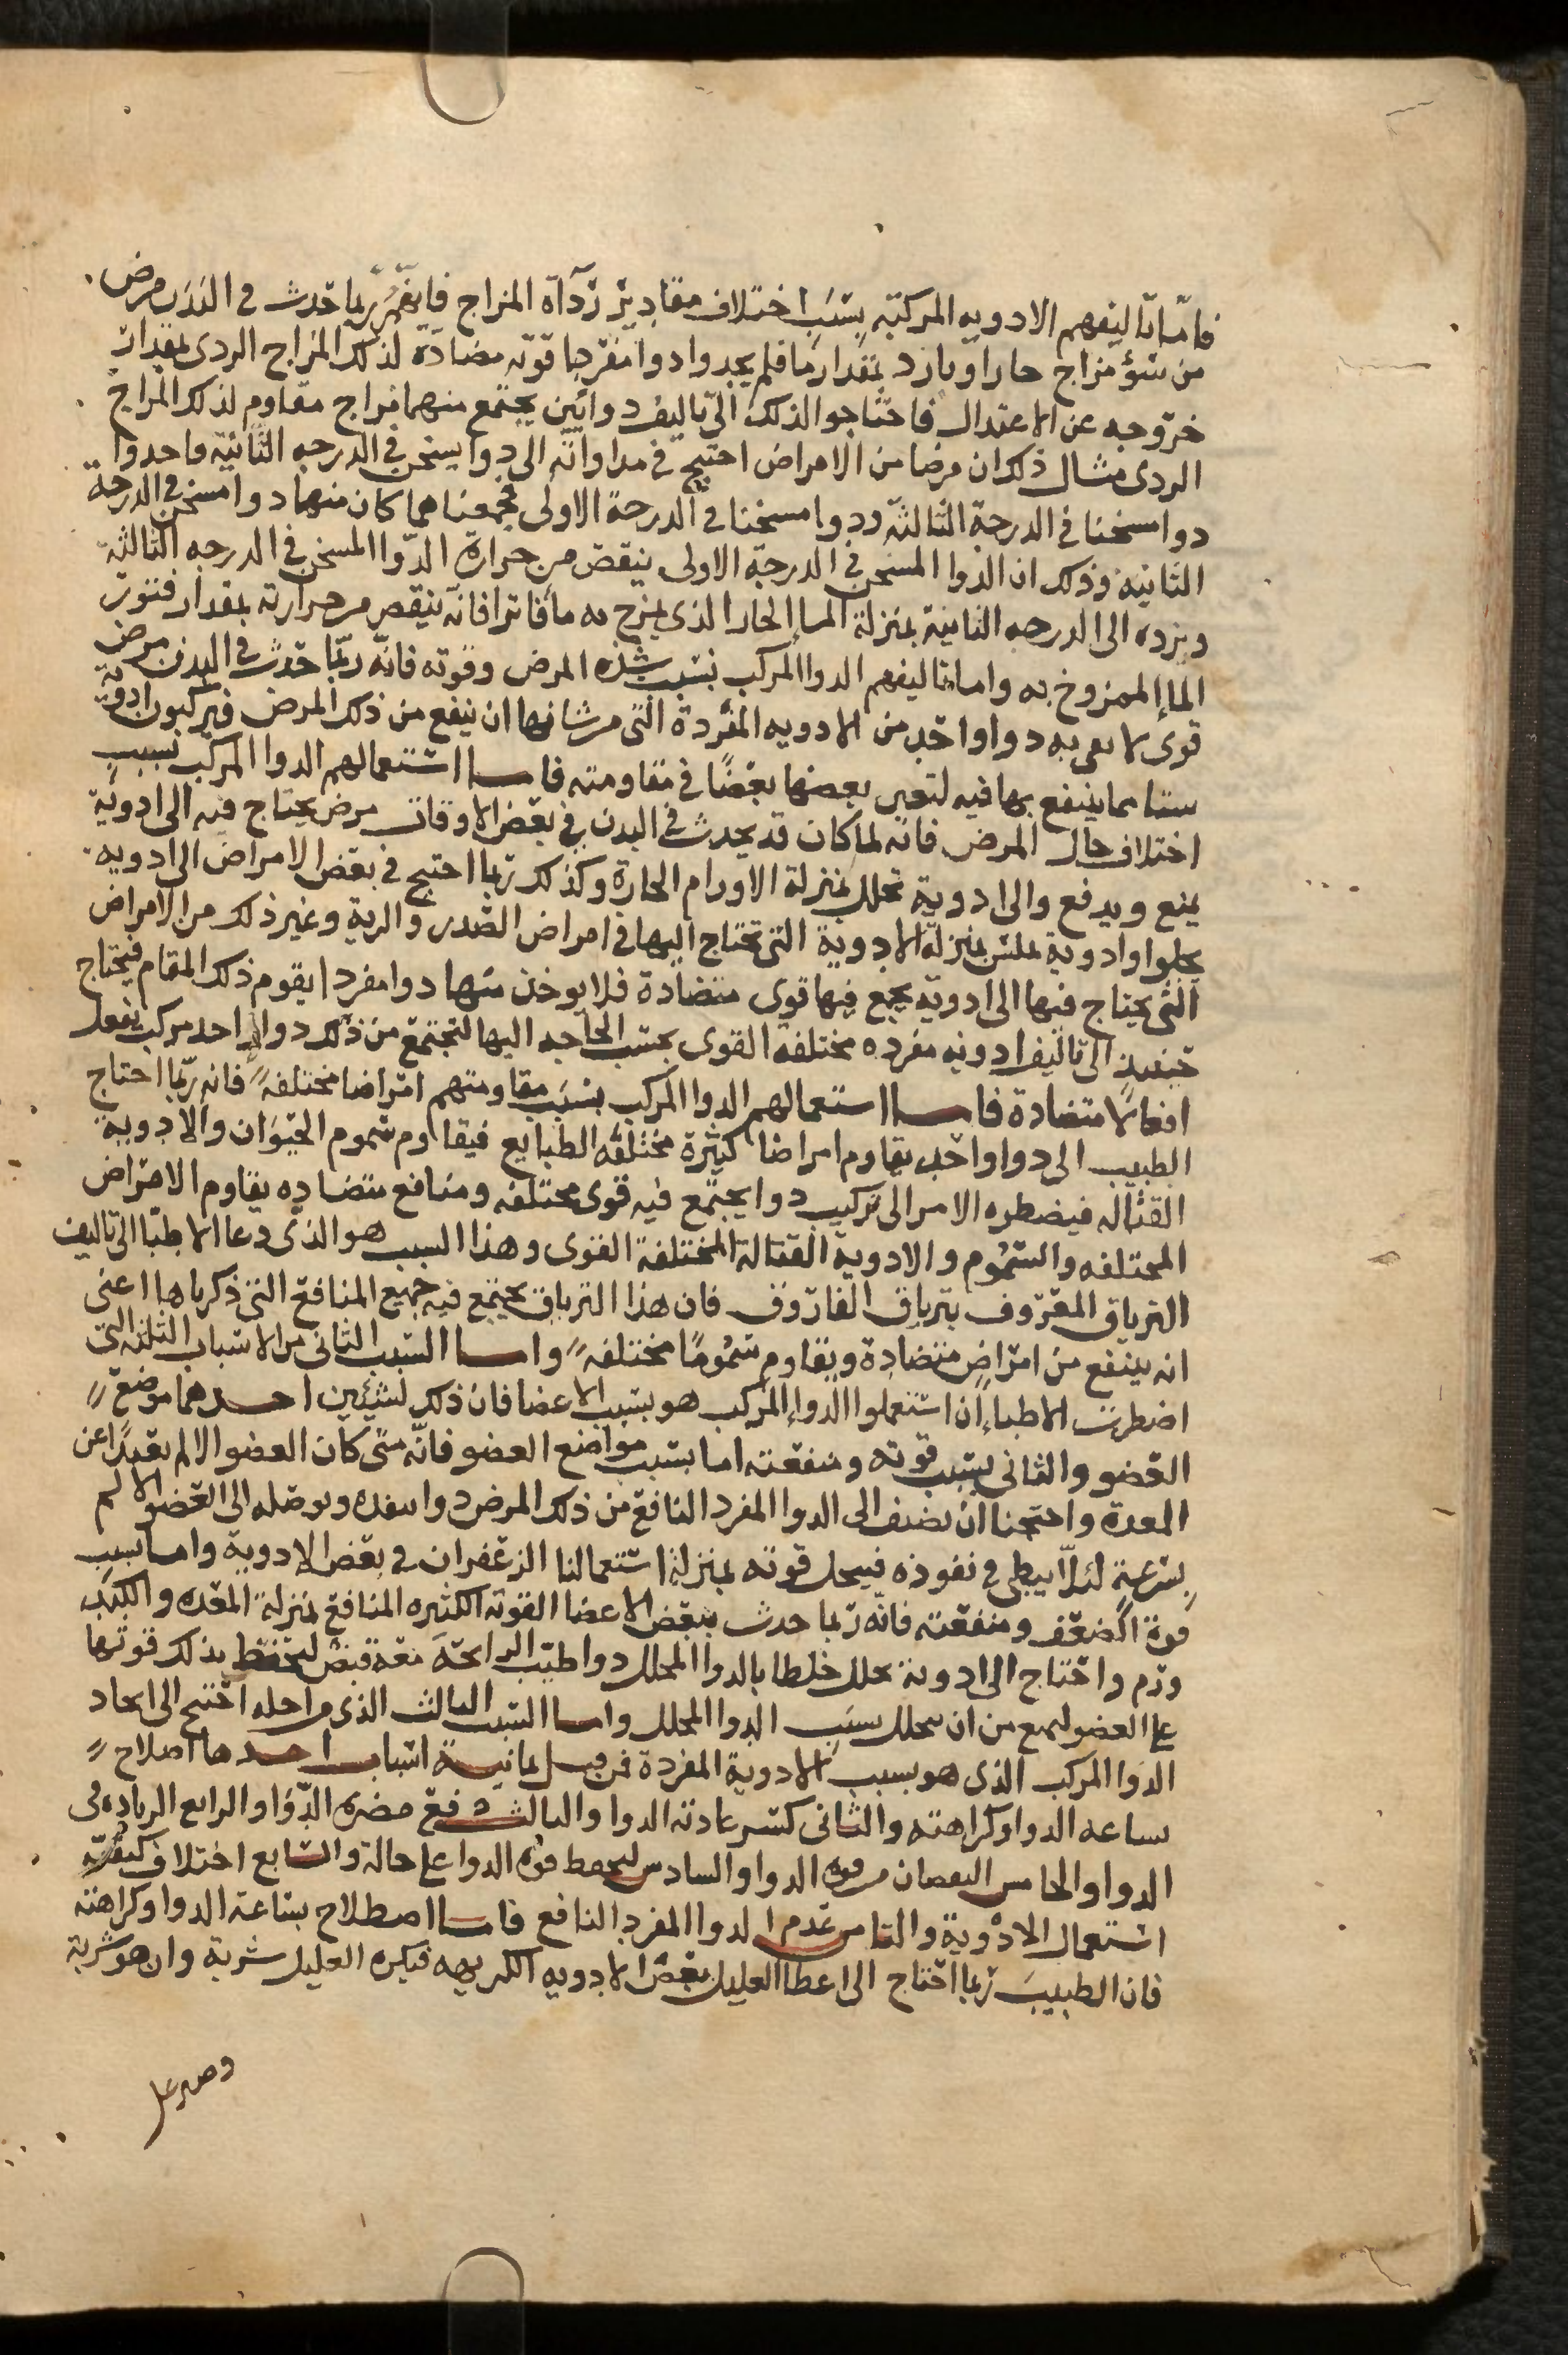 فامّا تاليفهم الادويه المركبّه بسَبَب اختلاف مقادير رَدآة المزاج فانّهم رُبّما حَدث فى البَدَن مرض
من سُؤ مزاج حار او بارد بمقدار ما فلم يجدوا دوا مفردا قوّته مضادّة لذلك المزاج الردى بمقدار
خروجه عن الاعتدال فاحتاجوا لذلك الى تاليف دوائين يجتمع منهما مزاج مقاوم لذلك المزاج
الردى مثال ذلك ان مرضا من الامراض احتيج فى مداواته الى دوا يسخن فى الدرجه الثانية فاخذوا
دوا مسخنا فى الدرجة الثالثة ودوا مسخنا فى الدرجة الاولى فجمعناهما كان منهما دوا مسخن فى الدرجة
الثانيه وذلك ان الدوا المسخن فى الدرجة الاولى ينقص من حرارة الدّوا المسخن فى الدرجه الثالثة
ويرده الى الدرجه الثانية بمنزلة الماء الحار الذى يمزج به ما فاترا فانّه ينقص من حرارته بمقدار فتور
الماء الممزوج به واما تاليفهم الدوا المركب بسبب شدّه المرض وقوته فانّه ربّما حَدث فى البدن مرض
قوى لا يفى به دوا واحد من الادويه المفردة التى من شانها ان ينفع من ذلك المرض فيركبون ادوية
ستا مما ينتفع بها فيه لتعين بعضها بعضًا فى مقاومته فاما استعمالهم الدوا المركب بسبب
اختلاف حال المرض فانّه لما كان قد يحدث فى البدن فى بعض الاوقات مرض يحتاج فيه الى ادوية
يمنع ويدفع والى ادوية تحلل بمنزلة الاورام الحارة وكذلك ربما احتيج فى بعض الامراض الى ادويه
يجلوا وادوية تملس بمنزلة الادوية التى تحتاج اليها فى امراض الصّدر والرية وغير ذلك من الامراض
التى يحتاج فيها الى ادوية يجمع فيها قوى متضادة فلا يوخذ منها دوا مفردا يقوم ذلك المقام فيحتاج
حينيذ الى تاليف ادويه مفرده مختلفة القوى بحسب الحاجه اليها لتجتمع من ذلك دوا واحد مركب يفعل
افعالًا متضادة فاما استعمالهم الدوا المركب بسَبَب مقاومتهم امراضا مختلفة فانه ربّما احتاج
الطبيب الى دوا واحد يقاوم امراضا كثيرة مختلفة الطبايع فيقاوم سموم الحيوان والادوية
القتاله فيضطره الامر الى تركيب دوا يجتمع فيه قوى مختلفه ومنافع متضاده يقاوم الامراض
المختلفه والسُّموم والادوية القتالة المختلفة القوى وهذا السبب هو الذى دعا الاطبّا الى تاليف
الترياق المعروف بترياق الفاروق فان هذا الترياق يجتمع فيه جميع المنافع التى ذكرناها اعنى
انه ينفع من امراض متضادة ويقاوم سمومًا مختلفه واما السَّبب الثانى من الاسباب الثلثه التى
اضطرت الاطباء ان استعملوا الدواء المركب هو بسبب الاعضا فان ذلك لشيئين احدهما موضع
العضو والثانى بسبب قوته ومنفعته اما بسبب مواضع العضو فانّه متى كان العضو الالم بعيدًا عن
المعدة واحتجنا ان نضيف الى الدوا المفرد النافع من ذلك المرض دوا ينفده ويوصله الى العضو الالم
بسُرعةٍ لئلّا يبطى فى نفوذه فيحل قوته بمنزلة استعمالنا الزعفران فى بعض الادوية واما بسبب
قوة العضو ومنفعته فانّه ربما حدث ببعض الاعضا القويه الكثيره المنافع بمنزلة المعده والكبد
ورم واحتاج الى ادوية تحلل خلطنا بالدوا المحلل دوا طيّب الرائحة معه قبض ليحفظ بذلك قوتها
على العضو ليمنع من ان يتحلل بسبب الدوا المحلل واما السّبب الثالث الذى من اجله احتيج الى ايجاد
الدوا المركب الذى هو بسبب الادوية المفردة فمن قبل ثمانية اسباب احدها اصلاح
بشاعه الدوا وكراهته والثانى كسر عادته الدوا والثالث دفع مضره الدّوا والرابع الزياده فى
الدوا والخامس النقصان من قوه الدوا والسادس ليحفظ قوه الدوا على حالة والسّابع اختلاف كيفيّة
استعمال الادوية والثامن عدم الدوا المفرد النافع فاما اصطلاح بشاعة الدوا وكراهته
فان الطبيبَ ربما احتاج الى اعطا العليل بعض الادويه الكريهه فيكره العليل شربة وان هو شربة
وصبر على